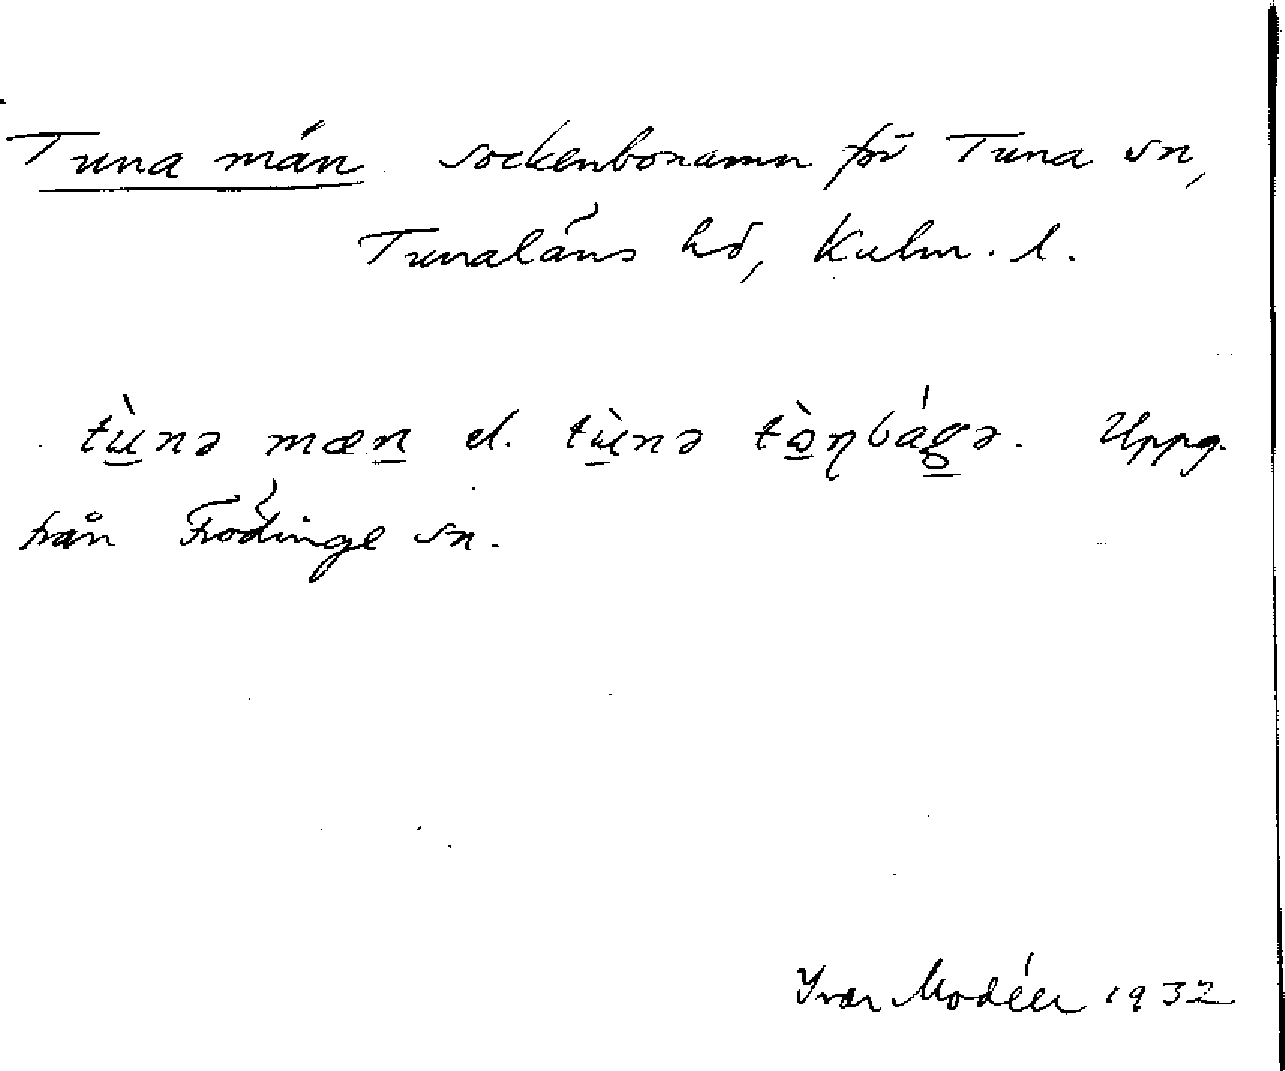 Tuna män sockenbonamn för Tuna sn,
Tunaläns hd, Kalm. l.
tù̲nə mæn̲ el. tù̲nə tò̲ŋbág̲ə. Uppg.
från Frödinge sn.
Ivar Modéer 1932